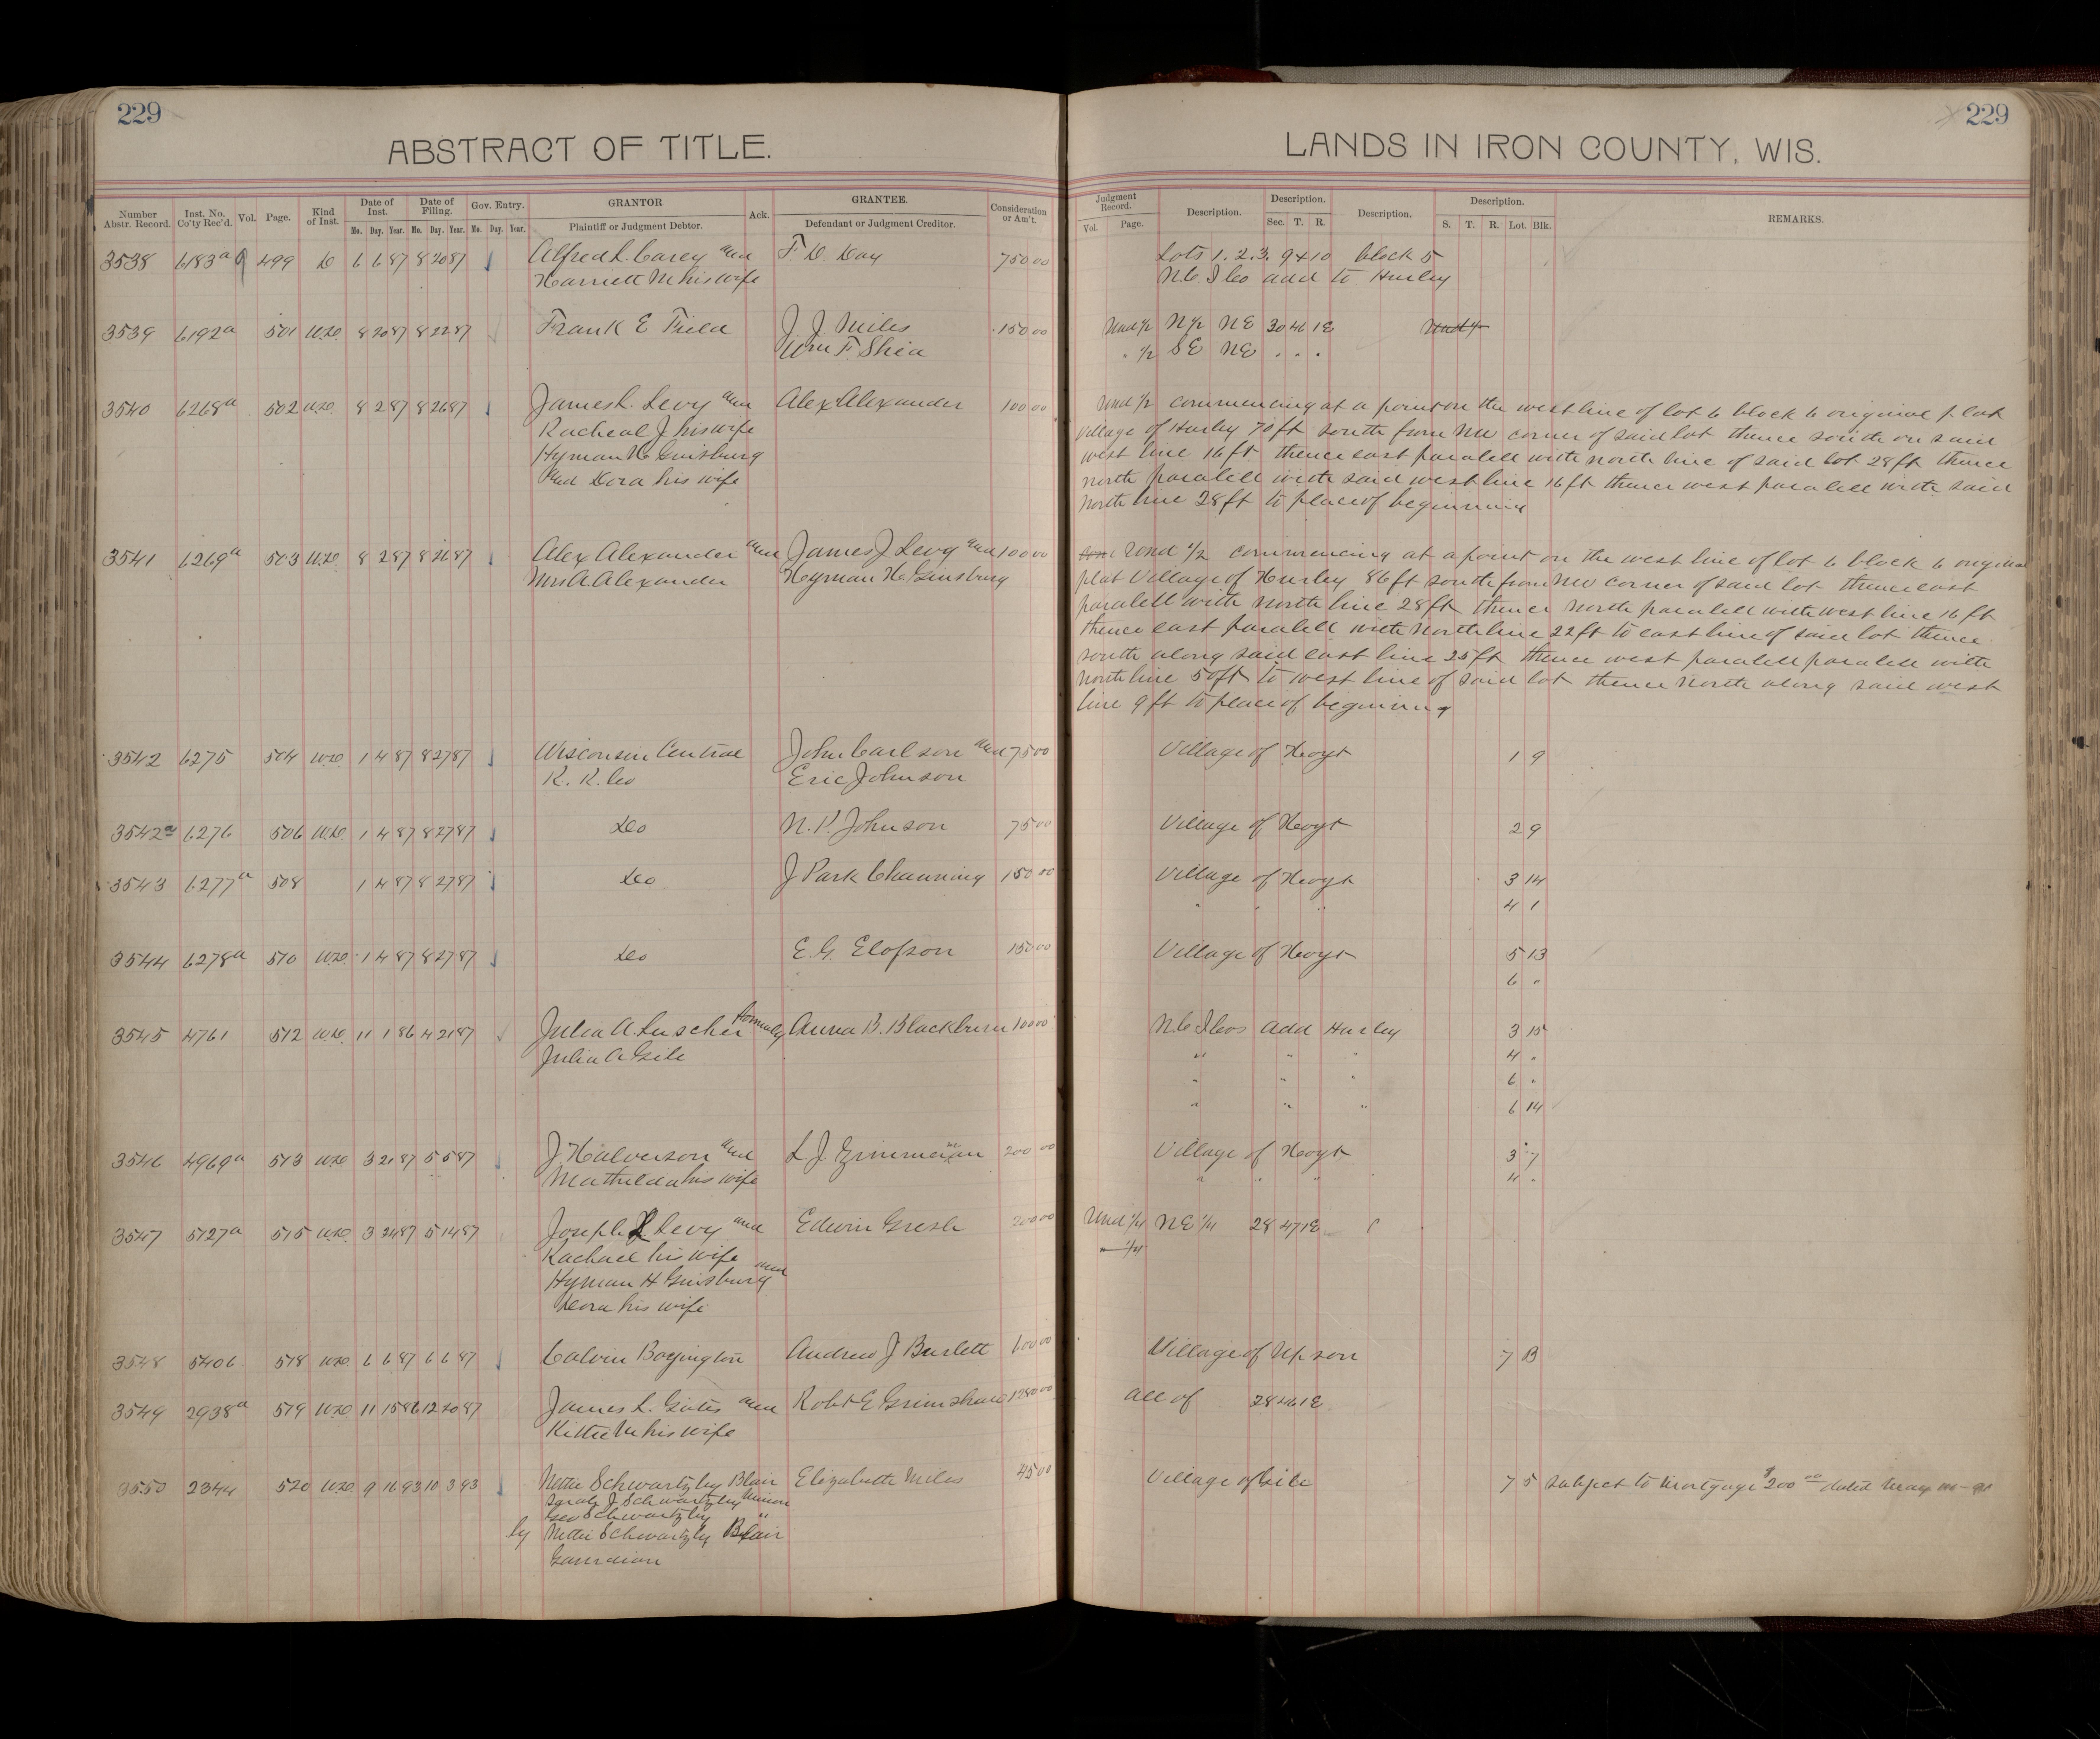 229
229
ABSTRACT OF TITLE.
LANDS IN IRON COUNTY, WIS.
Number Abstr. Record. Inst. No. Co'ty Rec'd. Vol. Page. Kind of Inst. Date of Inst. Mo. Day. Year. Date of Filing. Mo. Day. Year. Gov. Entry. Mo. Day. Year. GRANTOR Plaintiff or Judgment Debtor. Ack. GRANTEE. Defendant or Judgment Creditor. Consideration or Am't.
Judgment Record. Vol. Page. Description. Description. Sec. T. R. Description. Description. S. T. R. Lot. Blk. REMARKS.
3538 6183a 9 499 D 6 6 87 8 20 87 Alfred L. Carey and F. D. Day 750 00 Lots 1. 2. 3. 9 & 10 block 5
Harriett M his wife N.C. I Co add to Hurley
3539 6192a 501 W.D. 8 20 87 8 22 87 Frank E Field J. J. Miles 150 00 Und 1/2 N 1/2 NE 30 46 1E
Wm F. Shea " 1/2 SE NE . . .
3540 6268a 502 W.D. 8 2 87 8 26 87 James L. Levy and Alex Alexander 100 00 Und 1/2 commencing at a point on the west line of lot 6 block 6 original plat
Racheal J his wife village of Hurley 70 ft south from NW corner of said lot thence south on said
Hyman H Ginsburg west line 16 ft thence east paralell with north line of said lot 28 ft thence
and Dora his wife north paralell with said west line 16 ft thence west paralell with said
north line 28 ft to place of beginning
3541 6269a 503 W.D. 8 2 87 8 26 87 Alex Alexander and James J Levy and 100 00 Und 1/2 commencing at a point on the west line of lot 6 block 6 original
Mrs A. Alexander Hyman H. Ginsburg plat Village of Hurley 86 ft south from NW corner of said lot thence east
paralell with north line 28 ft thence north paralell with west line 16 ft
thence east paralell with north line 22 ft to east line of said lot thence
south along said east line 25 ft thence west paralell paralell with
north line 50 ft to west line of said lot thence north along said west
line 9 ft to place of beginning
3542 6275 504 W.D. 1 4 87 8 27 87 Wisconsin Central John Carlson and 75 00 Village of Hoyt 1 9
R. R. Co Eric Johnson
3542a 6276 506 W.D. 1 4 87 8 27 87 Do N. P. Johnson 75 00 Village of Hoyt 2 9
3543 6277a 508 1 4 87 8 27 87 Do J Park Channing 150 00 Village of Hoyt 3 14
" " " 4 1
3544 6278a 510 W.D. 1 4 87 8 27 87 Do E. G. Elofson 150 00 Village of Hoyt 5 13
6 "
3545 4761 512 W.D. 11 1 86 4 21 87 Julia A Luscher formerly Anna B. Blackburn 100 00 N.C. I Cos add Hurley 3 15
Julia A Gile " " " 4 "
" " " 6 "
" " " 6 14
3546 4969a 513 W.D. 3 21 87 5 5 87 J. Halverson and L. J. Zimmerman 200 00 Village of Hoyt 3 7
Mathilda his wife " " " 4 "
3547 5127a 515 W.D. 3 24 87 5 14 87 Joseph L Levy and Edwin Gresh 200 00 Und 1/4 NE 1/4 28 47 1E
Rachael his wife and
Hyman H Ginsburg
Dora his wife
3548 5406 518 W.D. 6 6 87 6 6 87 Calvin Boyington Andrew J Burlett 60 00 Village of Upson 7 B
3549 2938a 519 W.D. 11 15 86 12 20 87 James L. Gates and Robt E Grimshaw 1280 00 all of 28 46 1E
Kittie M his wife
3550 2344 520 W.D. 9 16 93 10 3 93 Nettie Schwartzby Blair Elizabeth Miles 45 00 Village of Gile 7 5 subject to Mortgage $200 00 dated May
Schwartzby Minor
Geo Schwartzby "
by Nettie Schwartzby Blair
Gaurdian